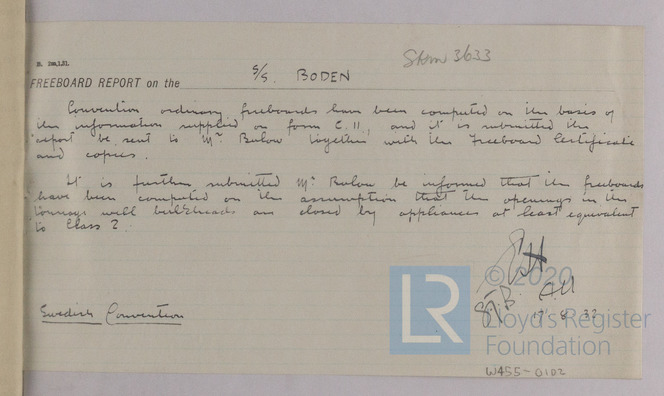 Stkm 3633
FREEBOARD REPORT on the S/S. BODEN
Convention ordinary freeboards have been computed on the basis of
the information supplied on form C.11., and it is submitted the
report be sent to Mr Bulow together with the Freeboard Certificate
and copies.
It is further submitted Mr Bulow be informed that the freeboards
have been computed on the assumption that the openings in the
tonnage well bulkheads are closed by appliances at least equivalent
to Class 2.
17 8 32
Swedish Convention
LR © 2020
Lloyd's Register
Foundation
W455-0102